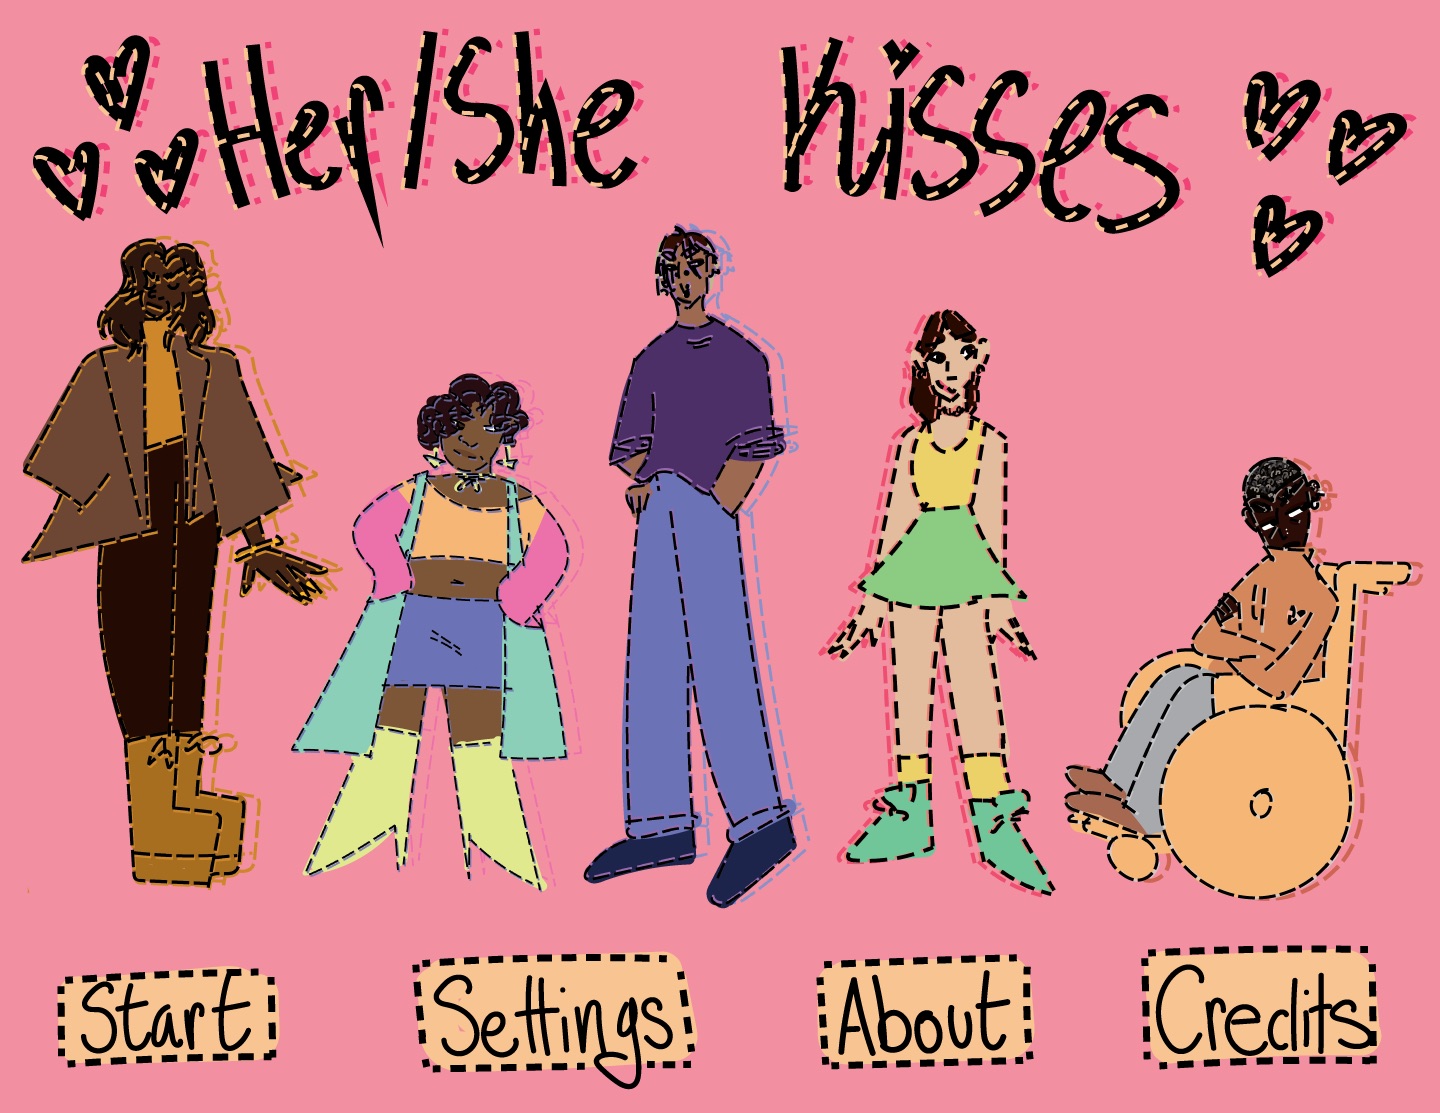 Her/She Kisses
Start Settings About Credits